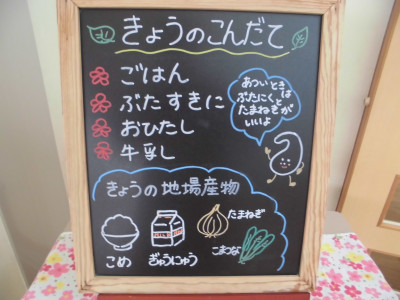 きょうのこんだて
ごはん
ぶたすきに
おひたし
牛乳
あついときは
ぶたにくと
たまねぎが
いいよ
きょうの地場産物
たまねぎ
こまつな
こめ
ぎゅうにゅう